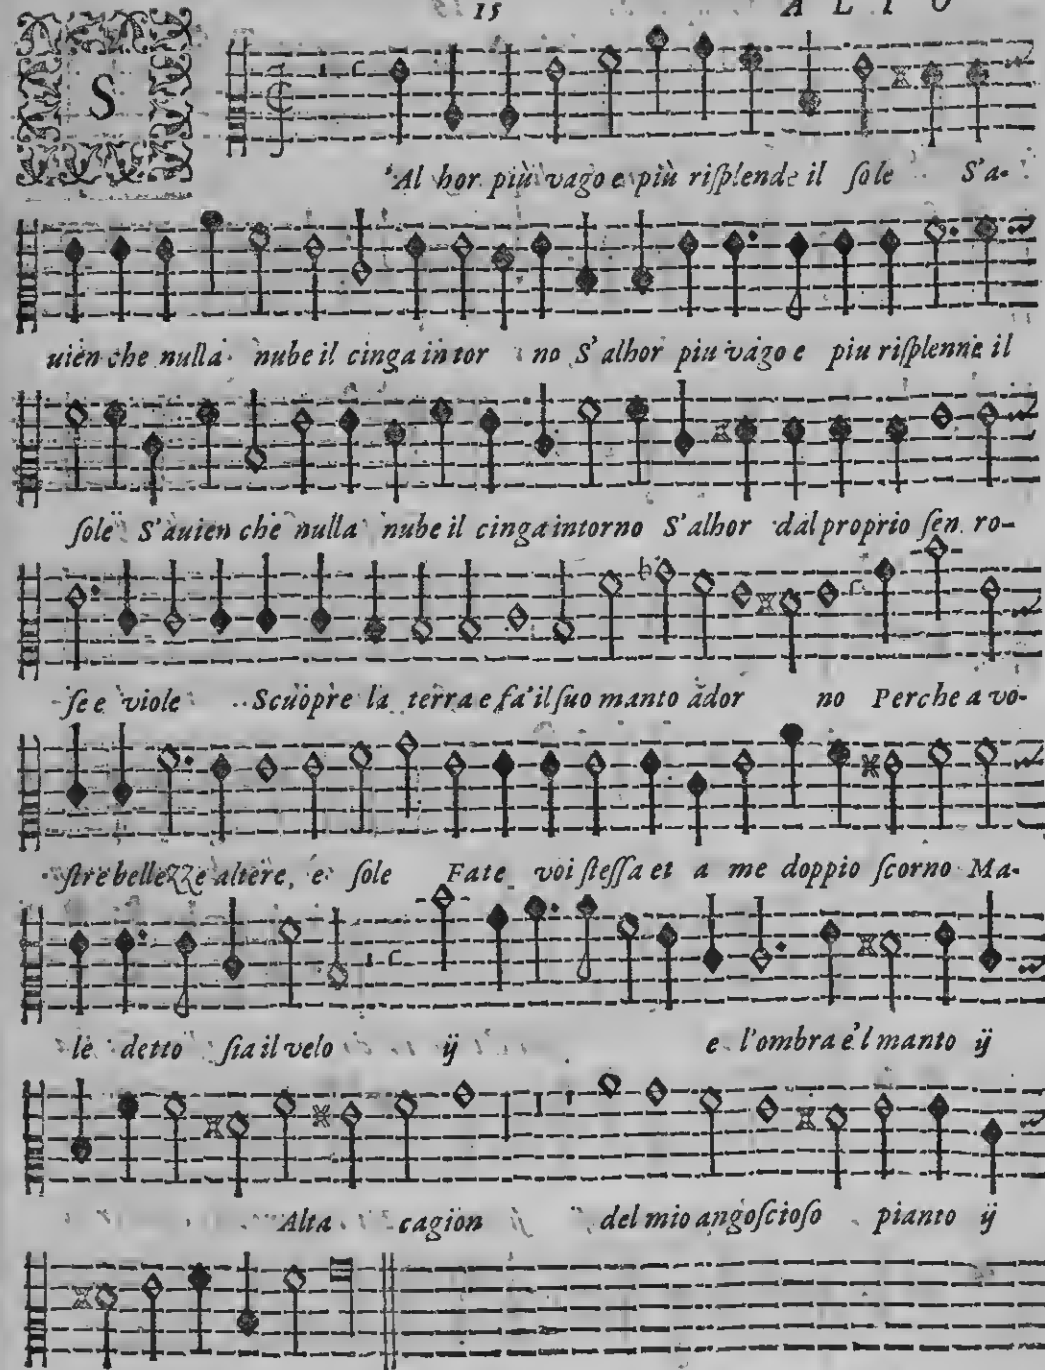 15 ALTO
S'Al hor più vago e più riſplende il ſole S'a-
uien che nulla nube il cinga intor no S'alhor piu vago e piu riſplenne il
ſole S'auien che nulla nube il cinga intorno S'alhor dal proprio ſen ro-
ſe e viole Scuopre la terra e fa'il ſuo manto ador no Perche a vo-
ſtre bellezze altere, e ſole Fate voi ſteſſa et a me doppio ſcorno Ma-
le detto ſia il velo ij e l'ombra e'l manto ij
Alta cagion del mio angoſcioſo pianto ij